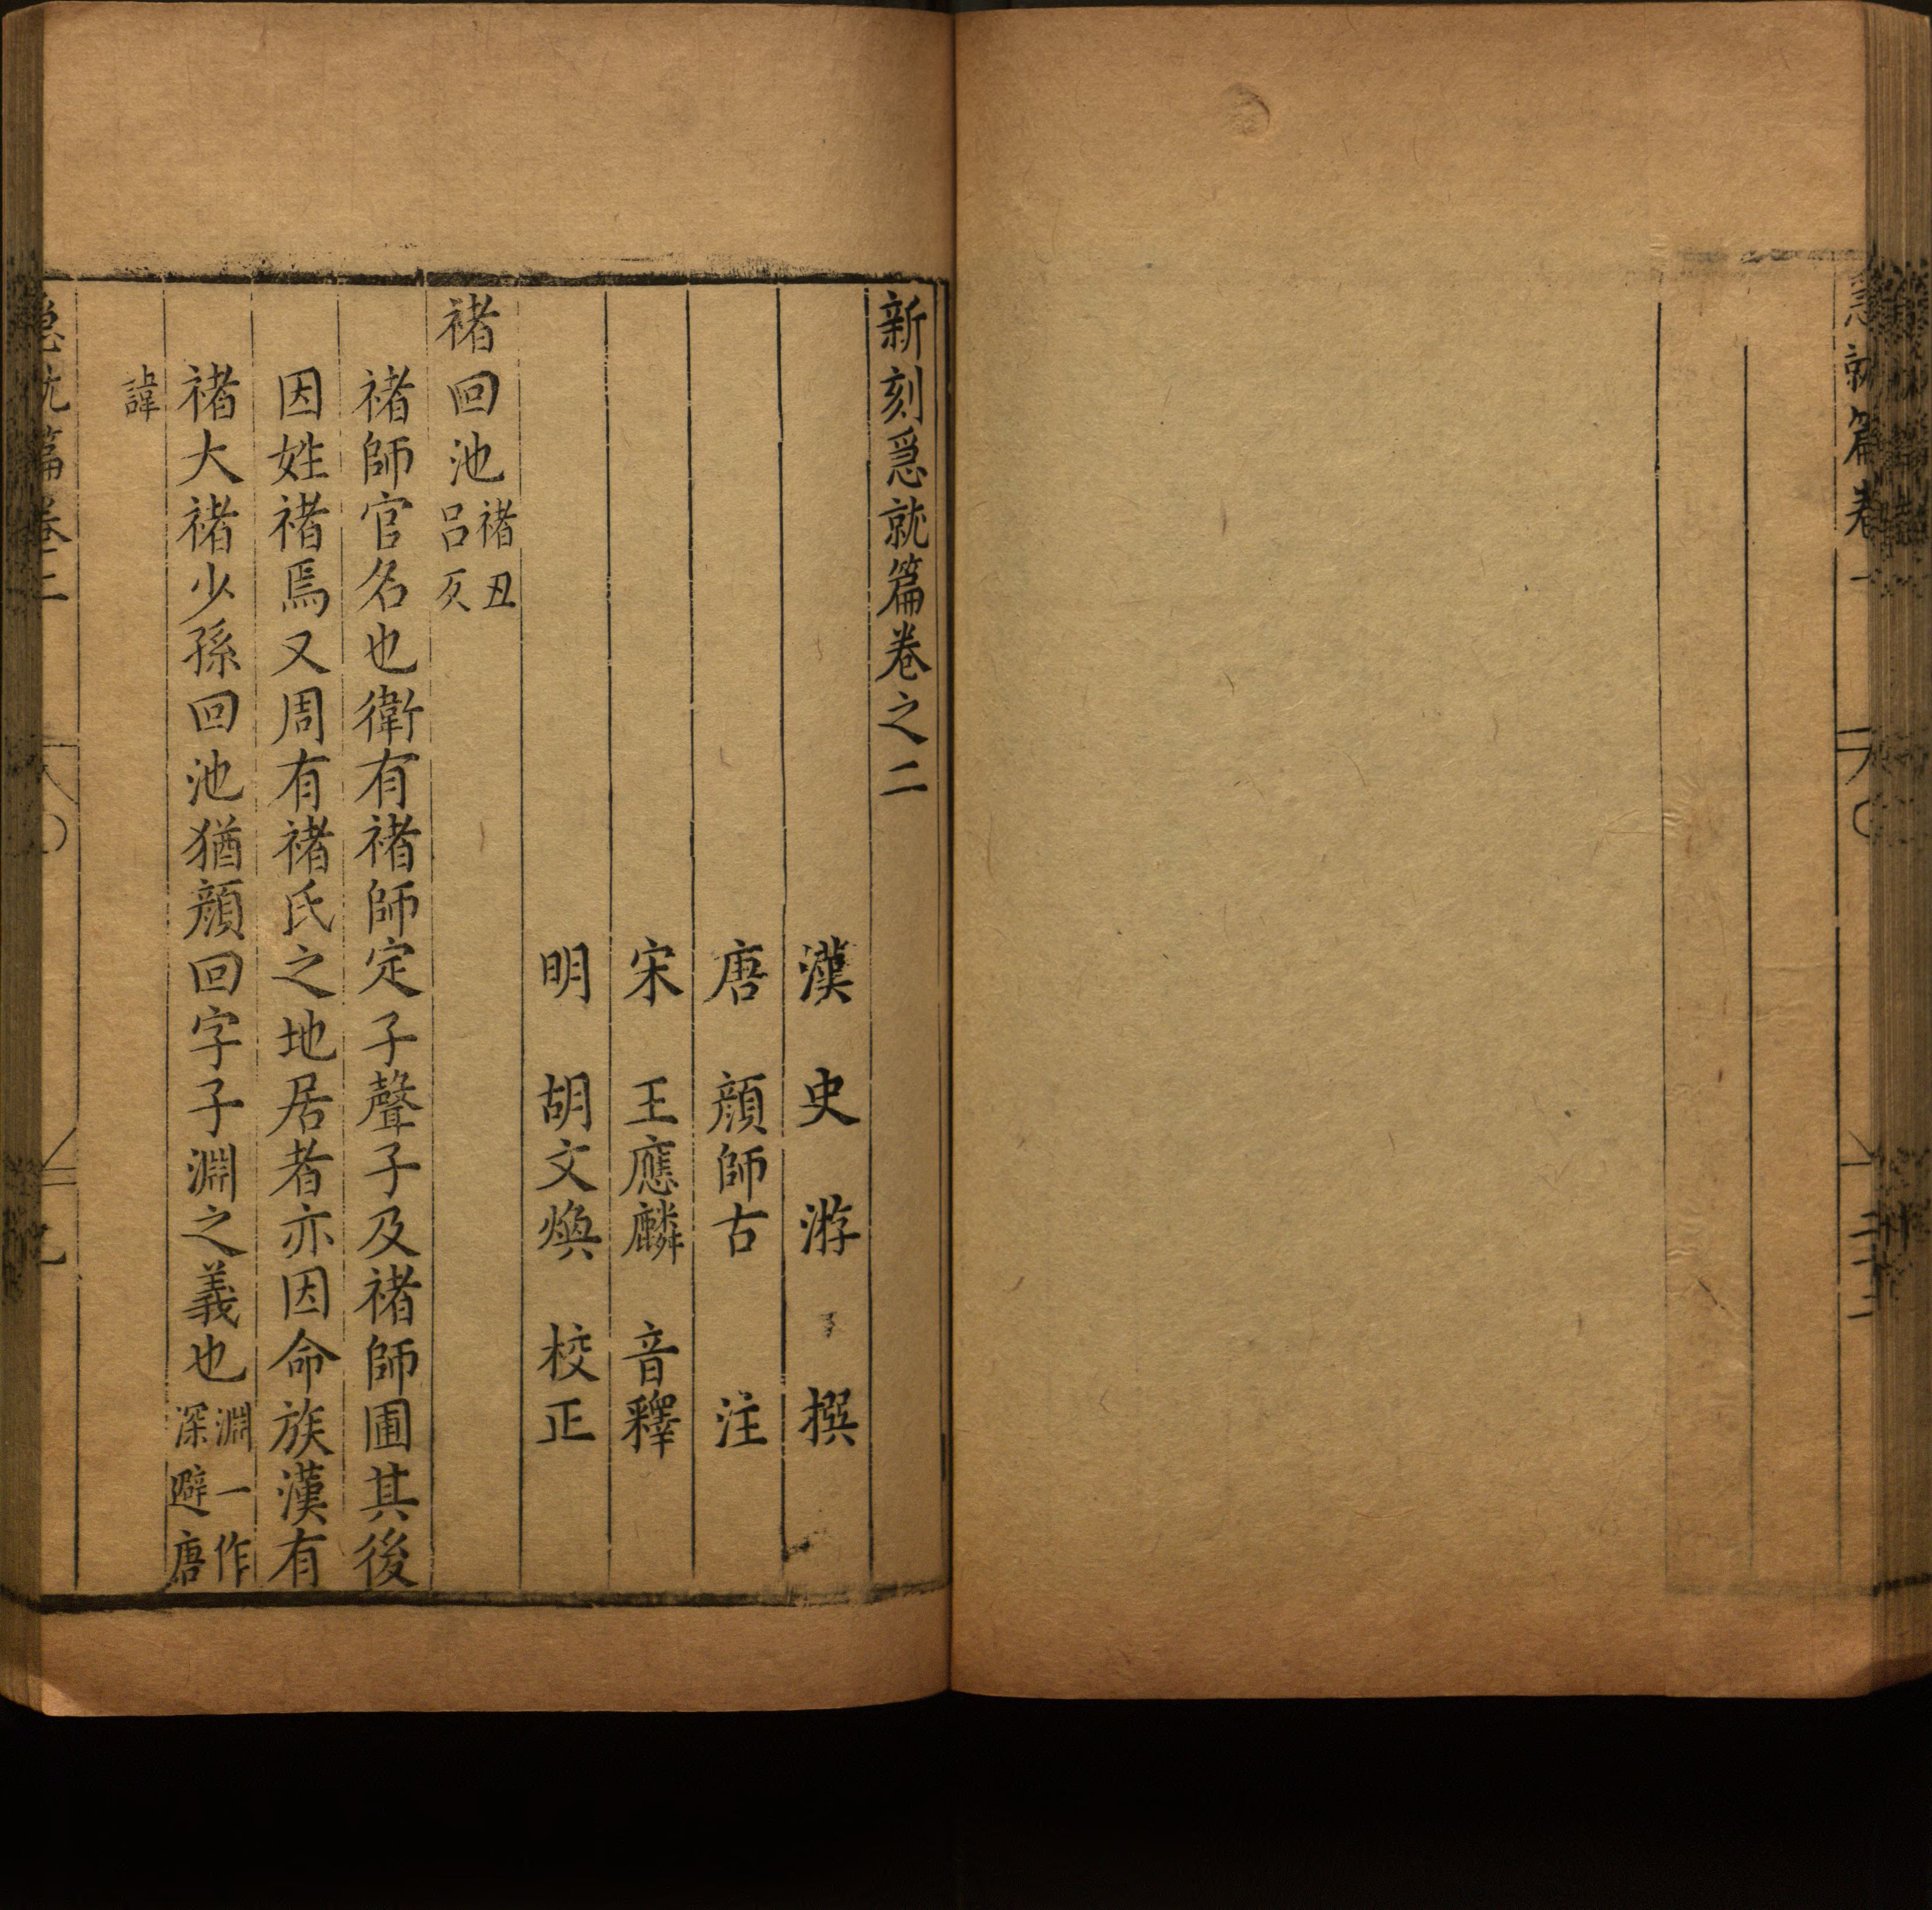 急就篇卷一
二十二
新刻急就篇卷之二
漢 史 游 撰
唐 顔師古 注
宋 王應麟 音釋
明 胡文煥 校正
褚回池褚丑呂反
褚師官名也衛有褚師定子聲子及褚師圃其後
因姓褚焉又周有褚氏之地居者亦因命族漢有
褚大褚少孫回池猶顔回字子淵之義也淵一作深避唐
諱
急就篇卷二